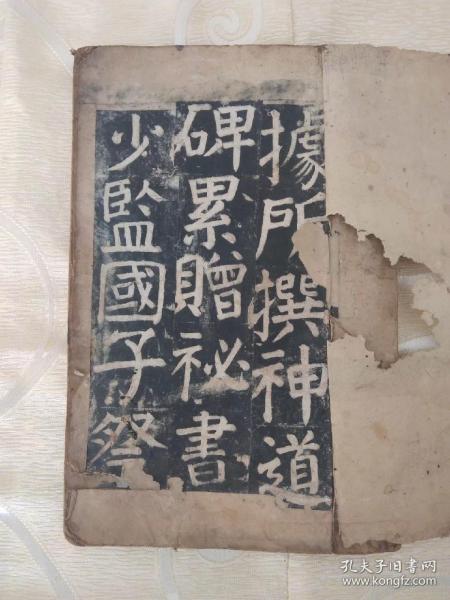 據所撰神道
碑累贈祕書
少監國子祭
孔夫子旧书网
www.kongfz.com